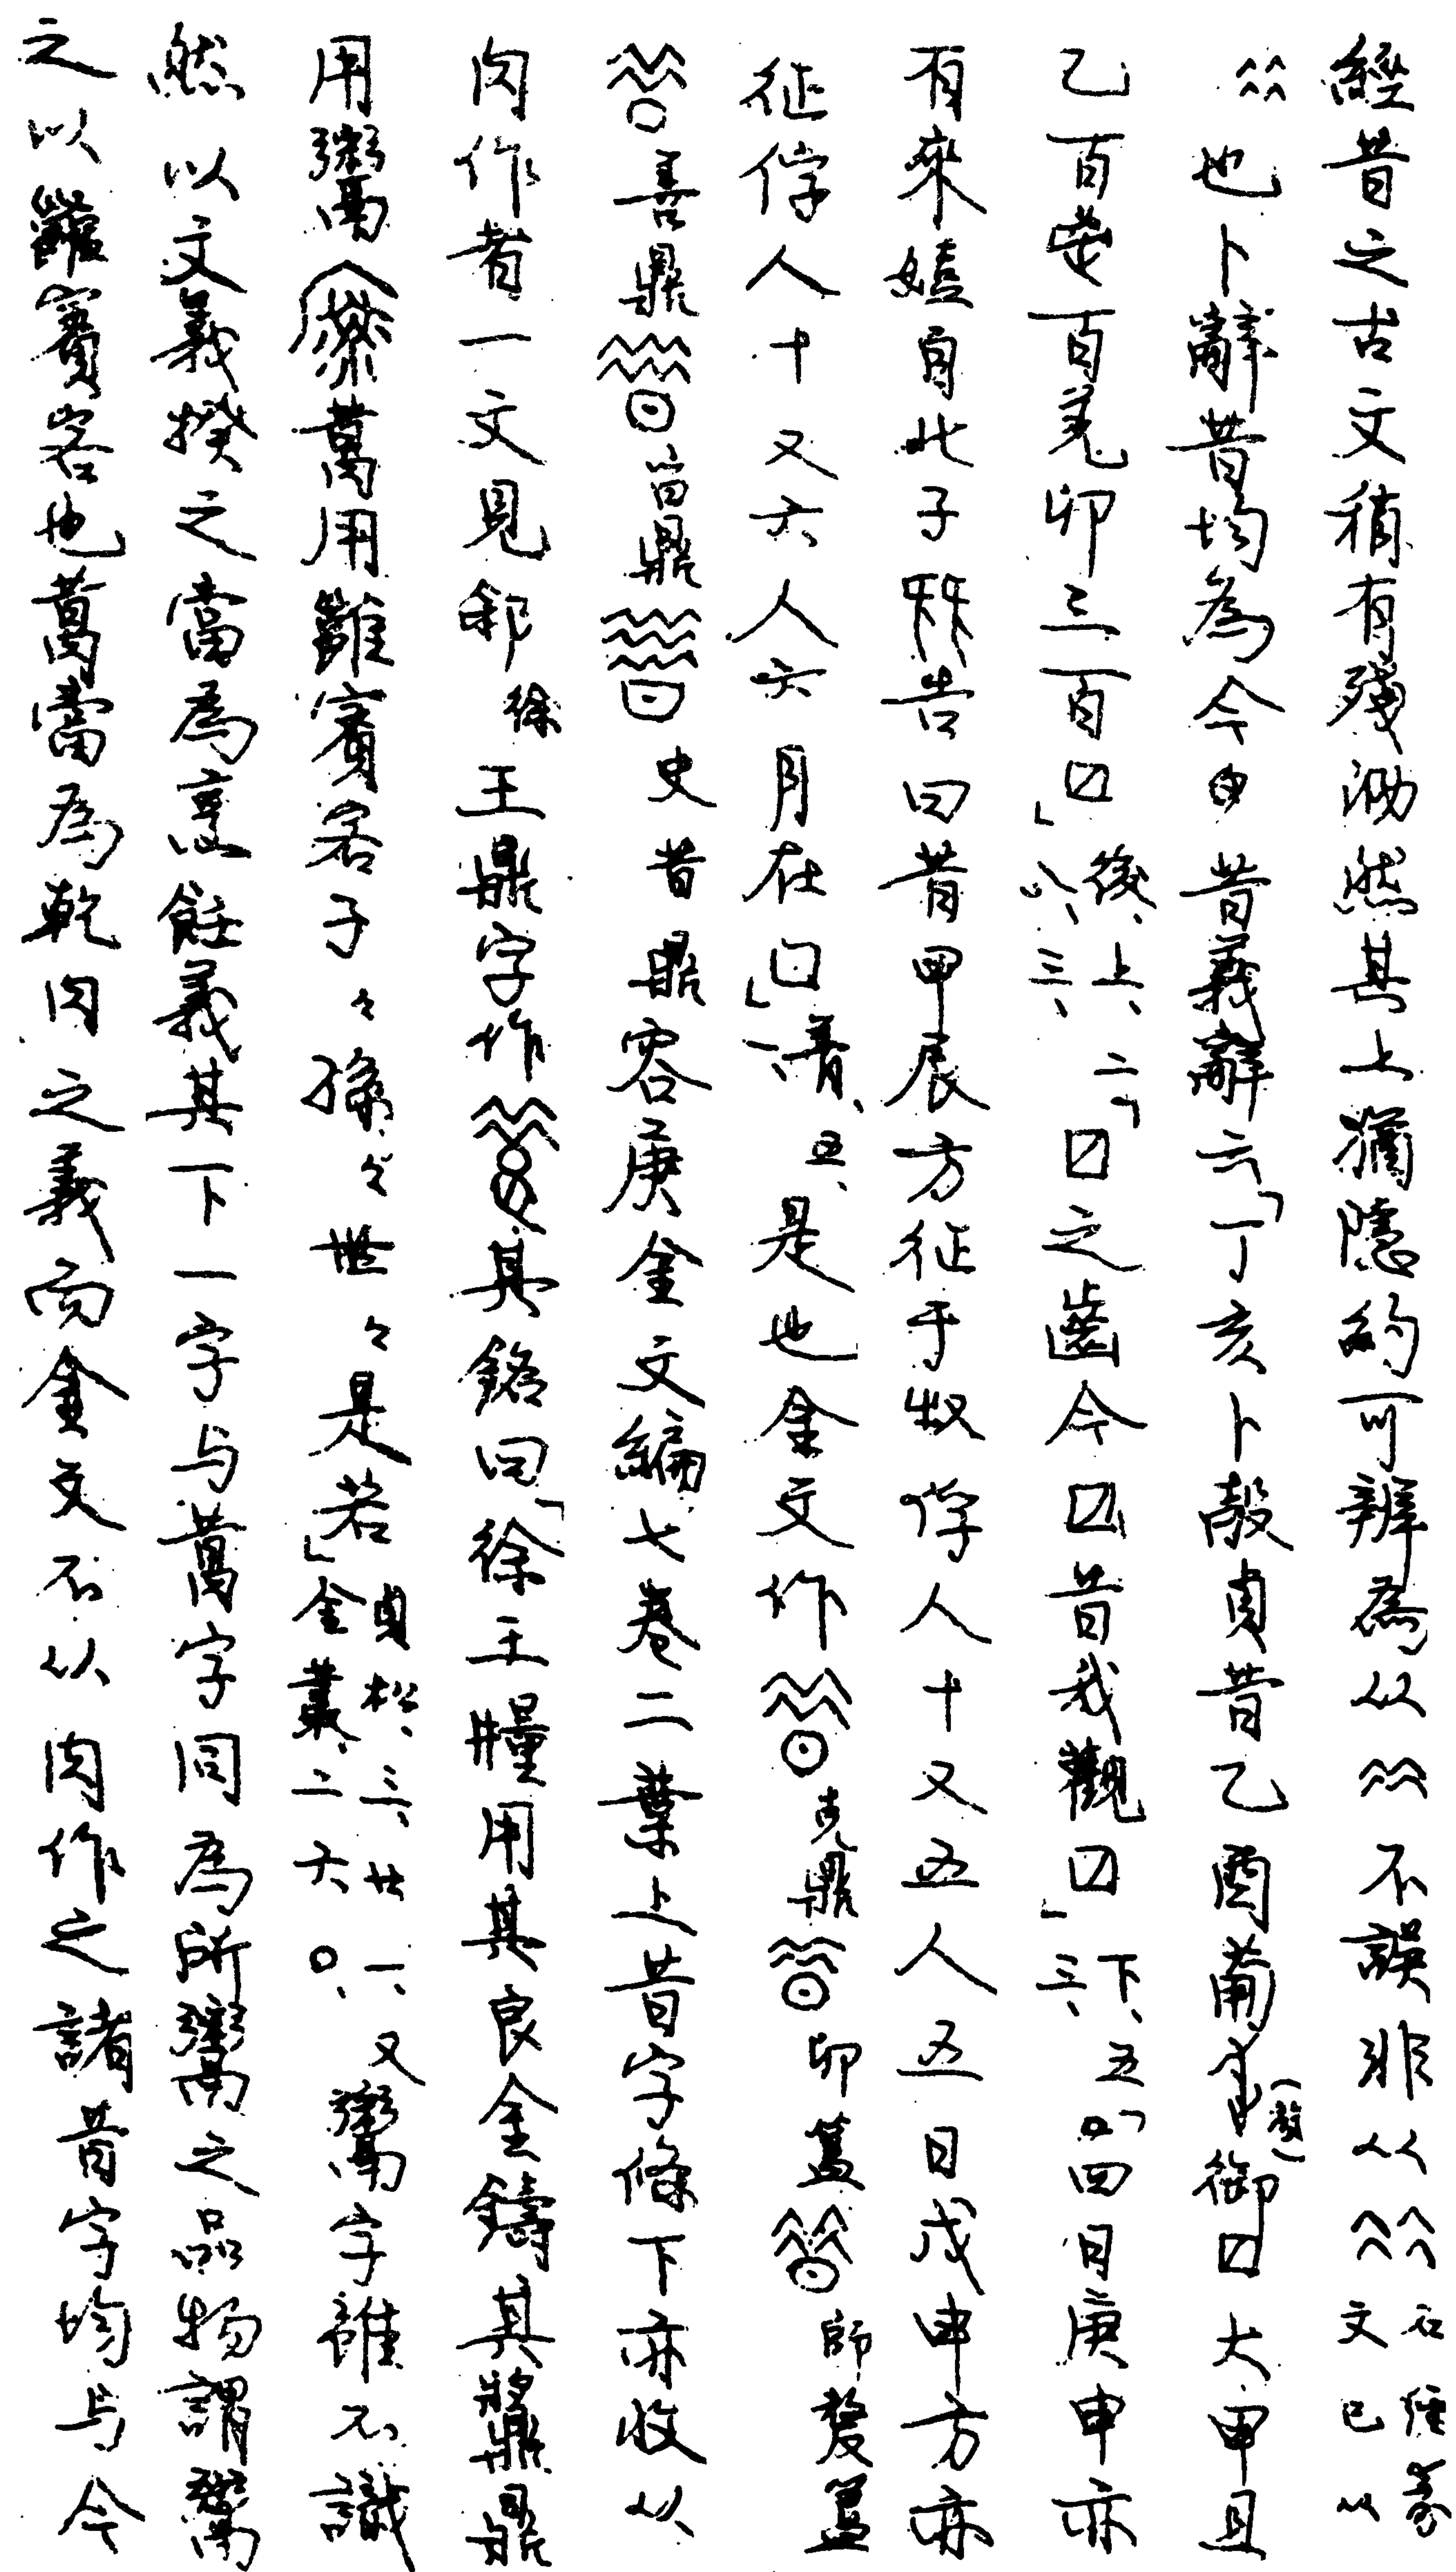 經昔之古文稍有殘泐然其上猶隱約可辨為从不誤非从石經篆文已从
也卜辭昔均為今昔義辭云「丁亥卜㱿貞昔乙酉箙御囗大甲且
乙百鬯百羌卯三百囗」後、上、二八、三、「囗之齒今囗昔我觀囗」下、五三、「四日庚申亦
有來嬉自北子告曰昔甲辰方征于俘人十又五人五日戊申方亦
征俘人十又六人六月在囗」菁、五、是也金文作克鼎卯簋師嫠簋
善鼎鼎史昔鼎容庚金文編七卷二葉上昔字條下亦收从
肉作者一文見䣄徐王鼎字作其銘曰「徐王糧用其良金鑄其鼎
用鬻用雝賓客子々孫々世々是若」貞松、三、廿一、又金叢、二六〇、鬻字雖不識
然以文義揆之當為烹飪義其下一字与字同為所鬻之品物謂鬻
之以雝賓客也當為乾肉之義而金文不从肉作之諸昔字均与今